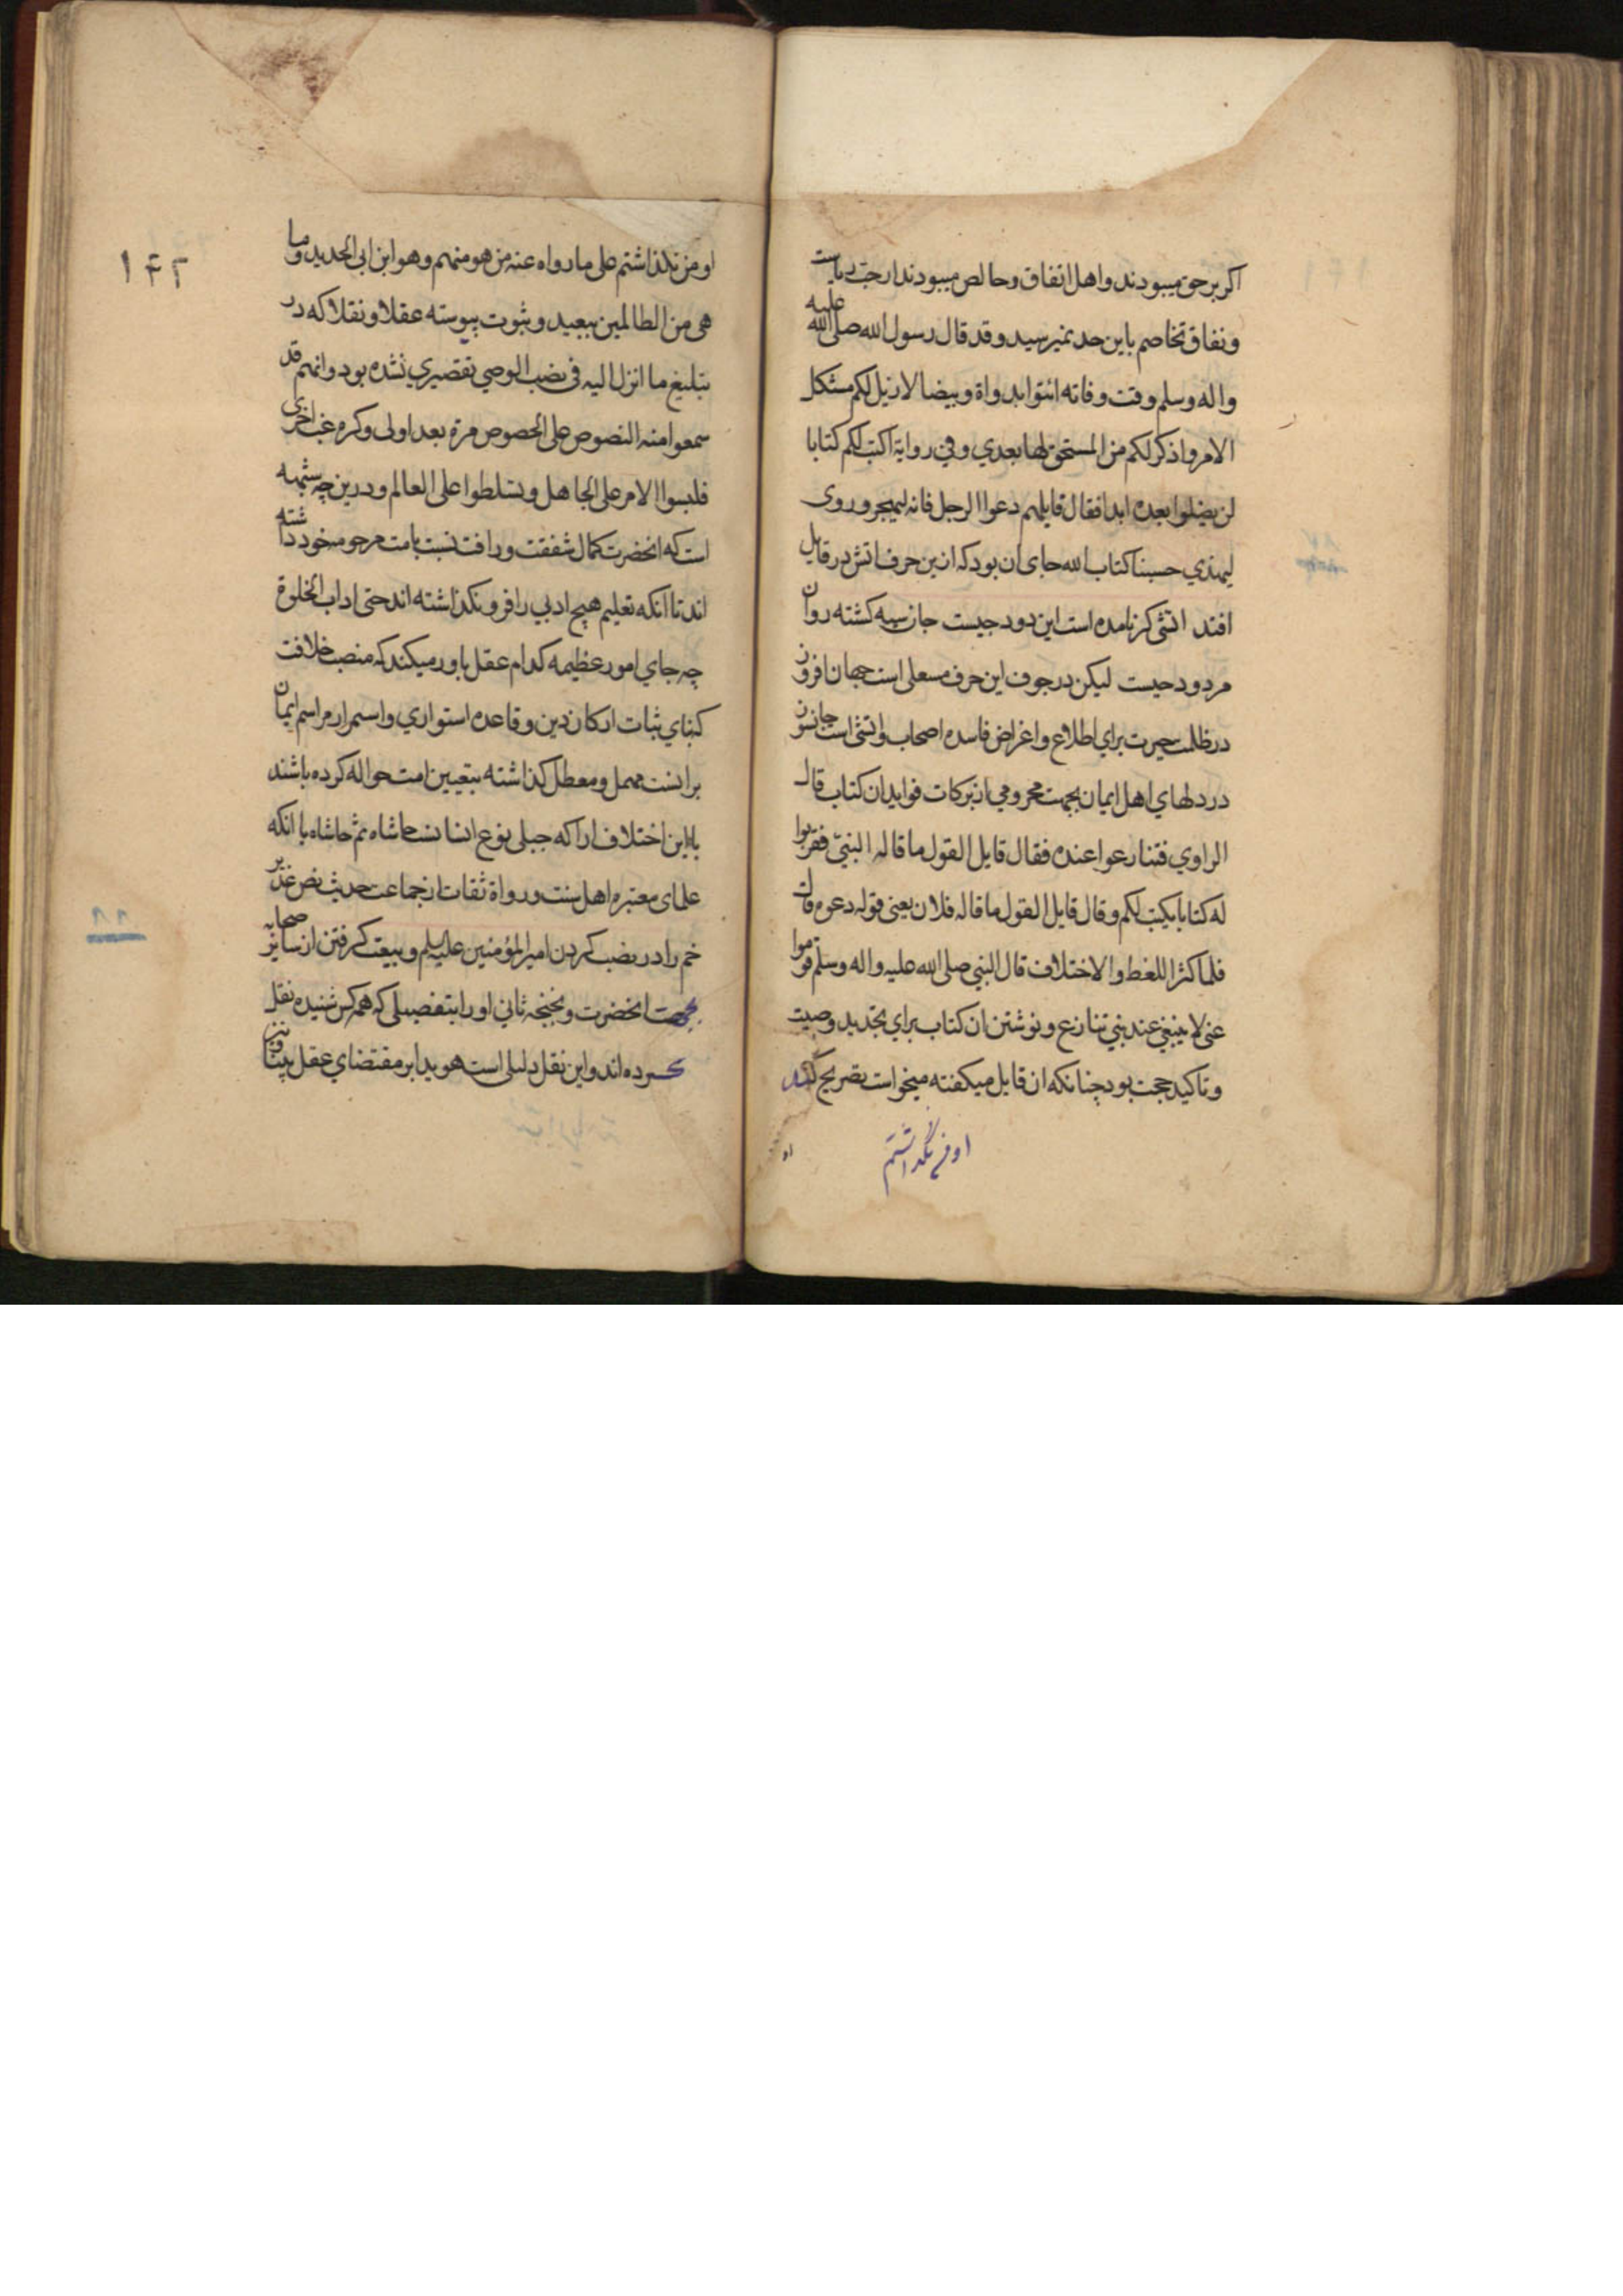 اكر برحق ميبودند و اهل اتفاق و خالص ميبودند از حب رياست
و نفاق تخاصم باين حد نميرسيد و قد قال رسول الله صلى الله عليه
و اله و سلم وقت وفاته ائتوا بدواة و بيضا لازيل لكم مشكل
الامر و اذكر لكم من المستحق لها بعدي و في رواية اكتب لكم كتابا
لن يضلوا بعده ابدا فقال قايلهم دعوا الرجل فانه ليهجر و روى
ليهذي حسبنا كتاب الله جاى ان بود كه ازين حرف اتش در قايل
افتد اتشى كرنامده است اين دود چيست جان سيه كشته روان
مردود چيست ليكن در جوف اين حرف مشعلى است جهان افروز
در ظلمت حيرت براي اطلاع و اغراض فاسده اصحاب و اتشى است جانسوز
در دلهاي اهل ايمان بجهت محرومي از بركات فوايد ان كتاب قال
الراوي فتنازعوا عنده فقال قايل القول ما قاله النبيّ فقربوا
له كتابا يكتب لكم و قال قايل القول ما قاله فلان يعنى قوله دعوه قال
فلما كثر اللغط و الاختلاف قال النبي صلى الله عليه و اله و سلم قوموا
عنى لا ينبغي عند نبي تنازع و نوشتن ان كتاب براي تجديد وصيت
و تاكيد حجت بود چنانكه ان قايل ميكفته ميخواست تصريح كند
او من نگذاشتم
او من نكذاشتم على ما رواه عنه من هو منهم و هو ابن ابى الحديد و ما
هى من الظالمين ببعيد و ثبوت پيوسته عقلا و نقلا كه در
تبليغ ما انزل اليه فى نصب الوصي تقصيري نشده بود و انهم قد
سمعوا منه النصوص على الخصوص مرة بعد اولى و كره غب اخرى
فلبسوا الامر على الجاهل و تسلطوا على العالم و درين چه شبهه
است كه انحضرت كمال شفقت و رافت نسبت بامت مرحومه خود داشته
اند تا انكه تعليم هيچ ادبي را فرو نكذاشته اند حتى اداب الخلوة
چه جاي امور عظيمه كدام عقل باور ميكند كه منصب خلافت
كه بناي ثبات اركان دين و قاعده استواري و استمرار مراسم ايمان
برانست مهمل و معطل كذاشته بتعيين امت حواله كرده باشند
با اين اختلاف ارا كه جبلى نوع انسانست حاشاه ثم حاشاه با انكه
علماى معتبره اهل سنت و رواة ثقات از جماعت حديث نص غدير
خم را در نصب كردن امير المؤمنين عليه السلم و بيعت كرفتن از ساير صحابه
بجهت انحضرت و بخبخه ثاني او را بتفصيلى كه همه كس شنيده نقل
كرده اند و اين نقل دليلى است هويدا بر مقتضاي عقل بينا و نيز
١٣٢